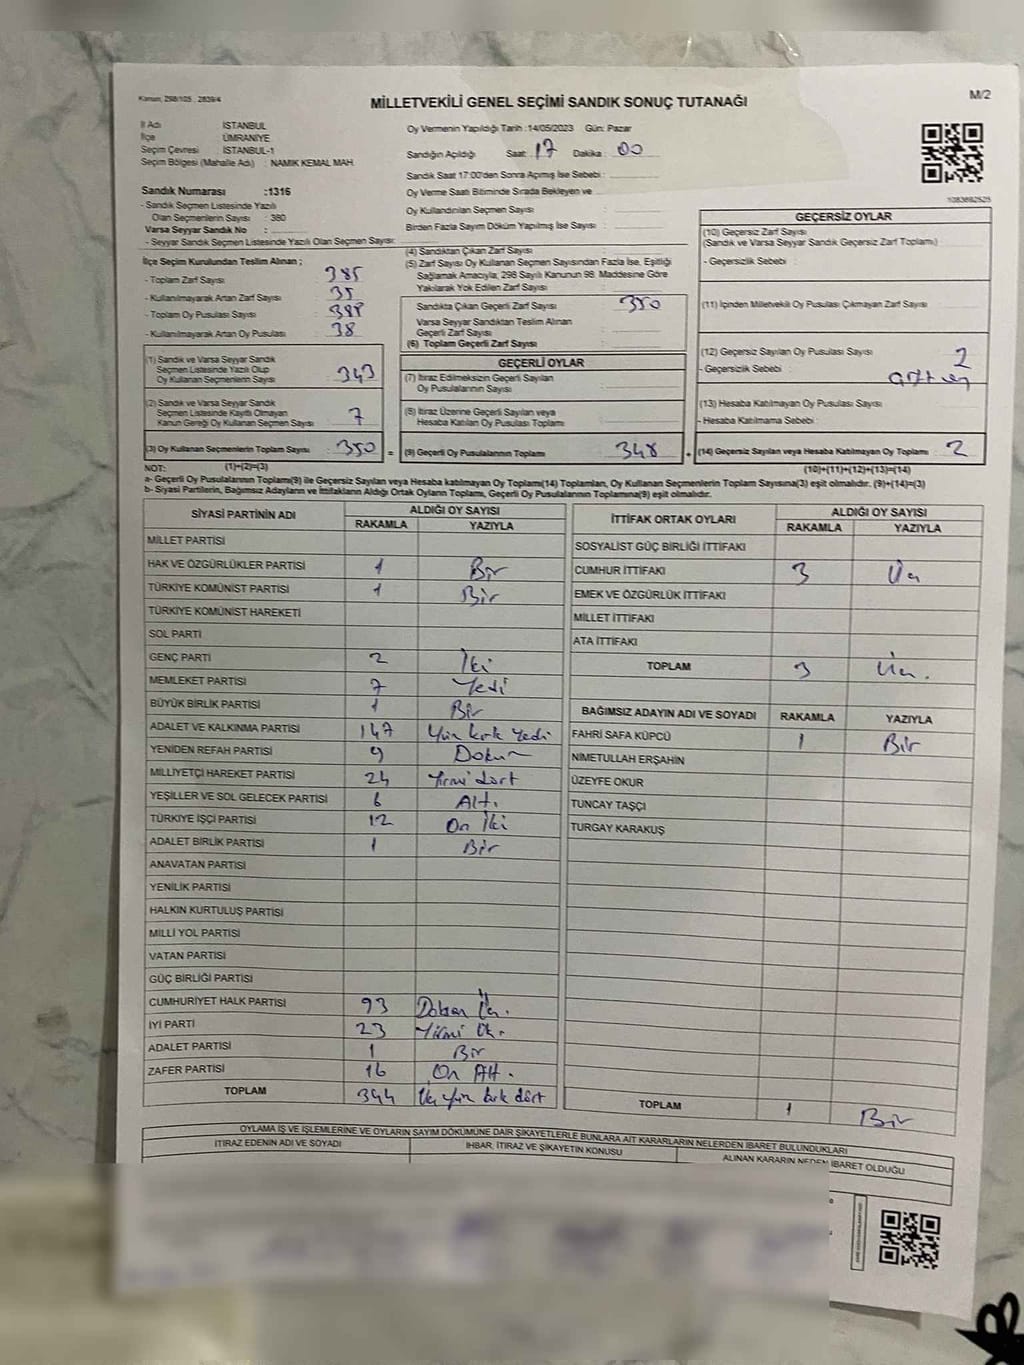 Kanun, 298/105 , 2839/4
M/2
MİLLETVEKİLİ GENEL SEÇİMİ SANDIK SONUÇ TUTANAĞI
İl Adı İSTANBUL
İlçe ÜMRANİYE
Seçim Çevresi İSTANBUL-1
Seçim Bölgesi (Mahalle Adı) : NAMIK KEMAL MAH.
Sandık Numarası :1316
- Sandık Seçmen Listesinde Yazılı
Olan Seçmenlerin Sayısı : 380
Varsa Seyyar Sandık No :
- Seyyar Sandık Seçmen Listesinde Yazılı Olan Seçmen Sayısı:
Oy Vermenin Yapıldığı Tarih :14/05/2023 Gün: Pazar
Sandığın Açıldığı Saat: 17 Dakika : 00
Sandık Saat 17:00'den Sonra Açımış İse Sebebi :
Oy Verme Saati Bitiminde Sırada Bekleyen ve
Oy Kullandırılan Seçmen Sayısı :
Birden Fazla Sayım Döküm Yapılmış İse Sayısı :
1083682525
İlçe Seçim Kurulundan Teslim Alınan ;
- Toplam Zarf Sayısı : 385
- Kullanılmayarak Artan Zarf Sayısı : 35
- Toplam Oy Pusulası Sayısı : 388
- Kullanılmayarak Artan Oy Pusulası : 38
(1) Sandık ve Varsa Seyyar Sandık
Seçmen Listesinde Yazılı Olup
Oy Kullanan Seçmenlerin Sayısı : 343
(2) Sandık ve Varsa Seyyar Sandık
Seçmen Listesinde Kayıtlı Olmayan
Kanun Gereği Oy Kullanan Seçmen Sayısı : 7
(3) Oy Kullanan Seçmenlerin Toplam Sayısı : 350 =
(4) Sandıktan Çıkan Zarf Sayısı :
(5) Zarf Sayısı Oy Kullanan Seçmen Sayısından Fazla İse, Eşitliği
Sağlamak Amacıyla, 298 Sayılı Kanunun 98. Maddesine Göre
Yakılarak Yok Edilen Zarf Sayısı :
Sandıkta Çıkan Geçerli Zarf Sayısı : 350
Varsa Seyyar Sandıktan Teslim Alınan
Geçerli Zarf Sayısı :
(6) Toplam Geçerli Zarf Sayısı :
GEÇERLİ OYLAR
(7) İtiraz Edilmeksizin Geçerli Sayılan
Oy Pusulalarının Sayısı :
(8) İtiraz Üzerine Geçerli Sayılan veya
Hesaba Katılan Oy Pusulası Toplamı :
(9) Geçerli Oy Pusulalarının Toplamı : 348 +
GEÇERSİZ OYLAR
(10) Geçersiz Zarf Sayısı
(Sandık ve Varsa Seyyar Sandık Geçersiz Zarf Toplamı) :
- Geçersizlik Sebebi :
(11) İçinden Milletvekili Oy Pusulası Çıkmayan Zarf Sayısı :
(12) Geçersiz Sayılan Oy Pusulası Sayısı : 2
- Geçersizlik Sebebi :
(13) Hesaba Katılmayan Oy Pusulası Sayısı :
- Hesaba Katılmama Sebebi :
(14) Geçersiz Sayılan veya Hesaba Katılmayan Oy Toplamı : 2
NOT: (1)+(2)=(3) (10)+(11)+(12)+(13)=(14)
a- Geçerli Oy Pusulalarının Toplamı(9) ile Geçersiz Sayılan veya Hesaba katılmayan Oy Toplamı(14) Toplamları, Oy Kullanan Seçmenlerin Toplam Sayısına(3) eşit olmalıdır. (9)+(14)=(3)
b- Siyasi Partilerin, Bağımsız Adayların ve İttifakların Aldığı Ortak Oyların Toplamı, Geçerli Oy Pusulalarının Toplamına(9) eşit olmalıdır.
SİYASİ PARTİNİN ADI ALDIĞI OY SAYISI
RAKAMLA YAZIYLA
MİLLET PARTİSİ
HAK VE ÖZGÜRLÜKLER PARTİSİ 1 Bir
TÜRKİYE KOMÜNİST PARTİSİ 1 Bir
TÜRKİYE KOMÜNİST HAREKETİ
SOL PARTİ
GENÇ PARTİ 2 İki
MEMLEKET PARTİSİ 7 Yedi
BÜYÜK BİRLİK PARTİSİ 1 Bir
ADALET VE KALKINMA PARTİSİ 147 Yüz kırk Yedi
YENİDEN REFAH PARTİSİ 9 Dokuz
MİLLİYETÇİ HAREKET PARTİSİ 24 Yirmi dört
YEŞİLLER VE SOL GELECEK PARTİSİ 6 Altı
TÜRKİYE İŞÇİ PARTİSİ 12 On İki
ADALET BİRLİK PARTİSİ 1 Bir
ANAVATAN PARTİSİ
YENİLİK PARTİSİ
HALKIN KURTULUŞ PARTİSİ
MİLLİ YOL PARTİSİ
VATAN PARTİSİ
GÜÇ BİRLİĞİ PARTİSİ
CUMHURİYET HALK PARTİSİ 93 Doksan Üç.
İYİ PARTİ 23 Yirmi Üç.
ADALET PARTİSİ 1 Bir
ZAFER PARTİSİ 16 On Altı.
TOPLAM 344 Üç yüz kırk dört
İTTİFAK ORTAK OYLARI ALDIĞI OY SAYISI
RAKAMLA YAZIYLA
SOSYALİST GÜÇ BİRLİĞİ İTTİFAKI
CUMHUR İTTİFAKI 3 Üç
EMEK VE ÖZGÜRLÜK İTTİFAKI
MİLLET İTTİFAKI
ATA İTTİFAKI
TOPLAM 3 Üç.
BAĞIMSIZ ADAYIN ADI VE SOYADI RAKAMLA YAZIYLA
FAHRİ SAFA KÜPCÜ 1 Bir
NİMETULLAH ERŞAHİN
ÜZEYFE OKUR
TUNCAY TAŞÇI
TURGAY KARAKUŞ
TOPLAM 1 Bir
OYLAMA İŞ VE İŞLEMLERİNE VE OYLARIN SAYIM DÖKÜMÜNE DAİR ŞİKAYETLERLE BUNLARA AİT KARARLARIN NELERDEN İBARET BULUNDUKLARI
İTİRAZ EDENİN ADI VE SOYADI İHBAR, İTİRAZ VE ŞİKAYETİN KONUSU ALINAN KARARIN NEDEN İBARET OLDUĞU